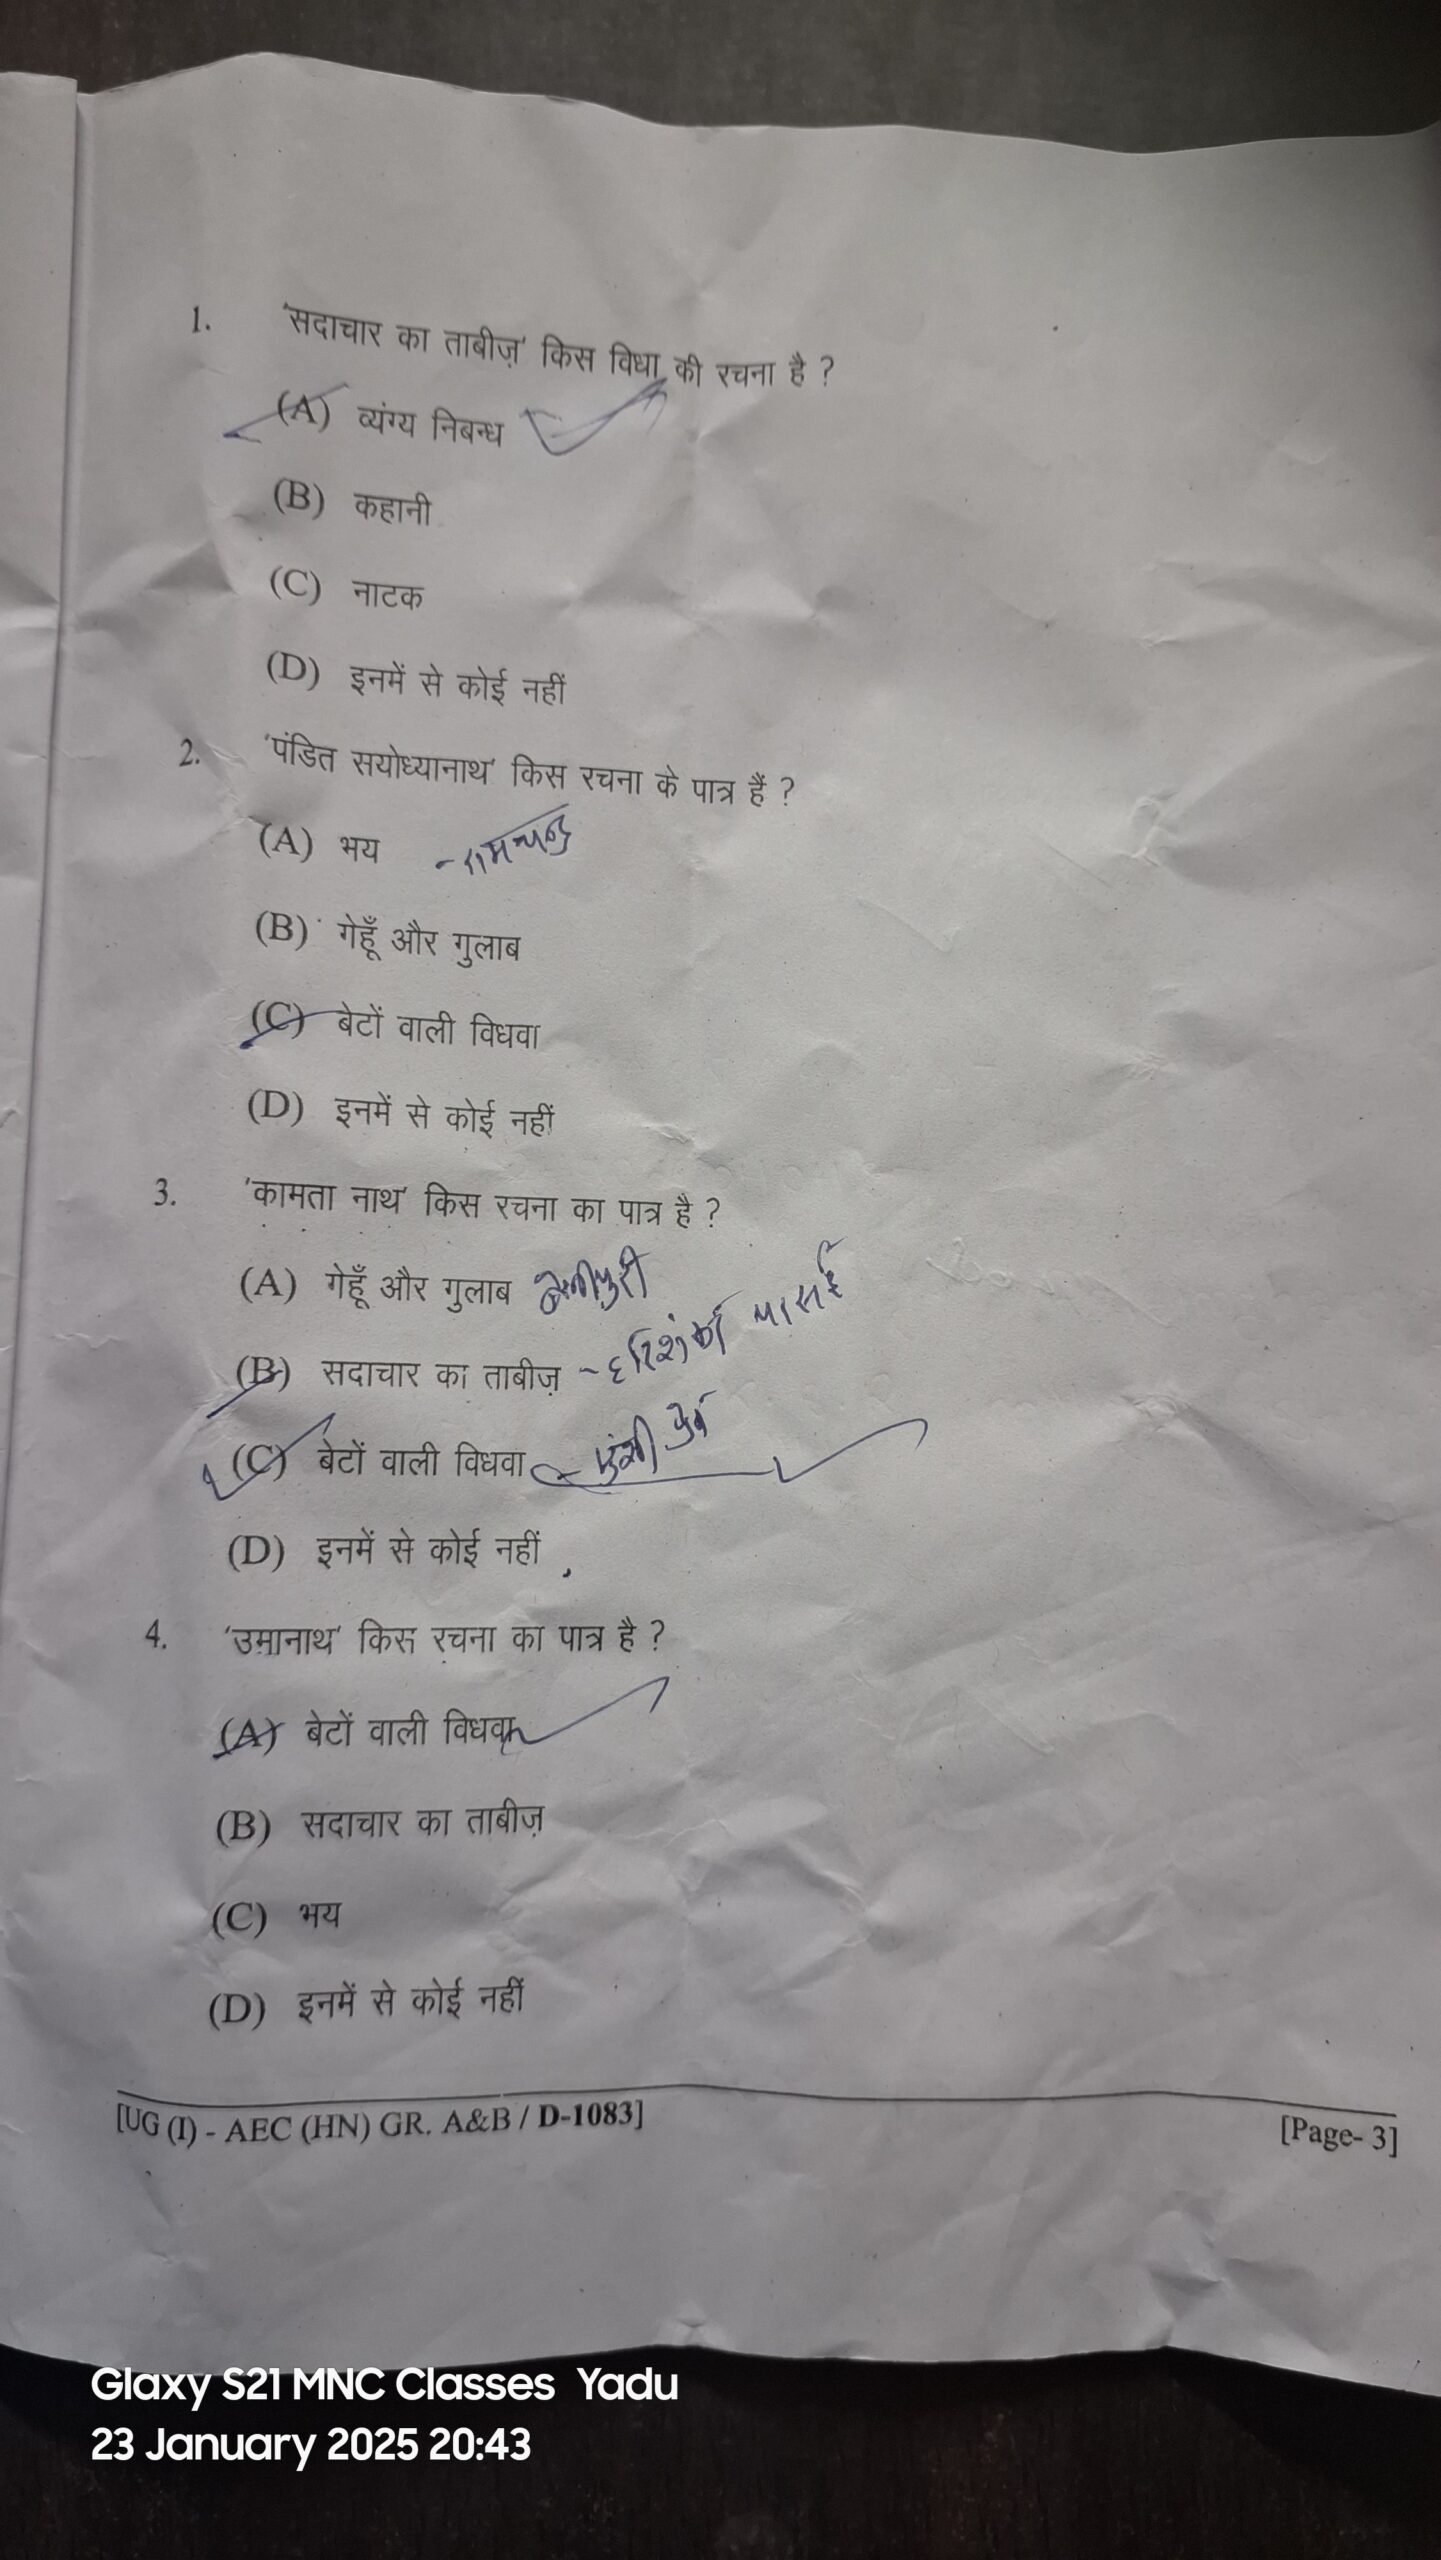 1. 'सदाचार का ताबीज़' किस विधा की रचना है ?
(A) व्यंग्य निबन्ध
(B) कहानी
(C) नाटक
(D) इनमें से कोई नहीं
2. 'पंडित सयोध्यानाथ' किस रचना के पात्र हैं ?
(A) भय - रामचन्द्र
(B) गेहूँ और गुलाब
(C) बेटों वाली विधवा
(D) इनमें से कोई नहीं
3. 'कामता नाथ' किस रचना का पात्र है ?
(A) गेहूँ और गुलाब बेनीपुरी
(B) सदाचार का ताबीज़ - हरिशंकर परसाई
(C) बेटों वाली विधवा - मुंशी
(D) इनमें से कोई नहीं
4. 'उमानाथ' किस रचना का पात्र है ?
(A) बेटों वाली विधवा
(B) सदाचार का ताबीज़
(C) भय
(D) इनमें से कोई नहीं
[UG (I) - AEC (HN) GR. A&B / D-1083] [Page- 3]
Glaxy S21 MNC Classes Yadu
23 January 2025 20:43